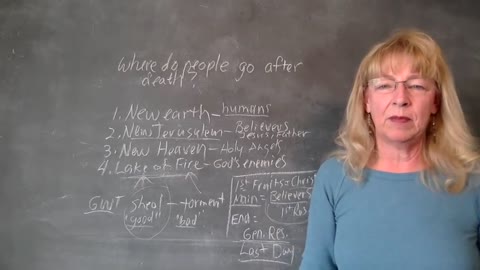 Where do people go after
death?
1. New earth - humans
2. New Jerusalem - Believers
Jesus, Father
3. New Heaven - Holy Angels
4. Lake of Fire - God's enemies
sheol - torment
"good" "bad"
1st Fruits = Christ
Main = Believers
1st Res
End:
Gen. Res.
Last Day